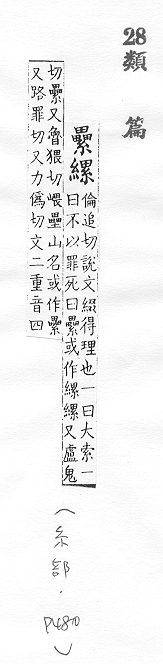 28類篇
纍縲倫追切說文綴得理也一曰大索一
曰不以罪死曰纍或作縲縲又盧鬼
切纍又魯猥切㟪壘山名或作纍
又路罪切又力僞切文二重音四
(糸部．P480)